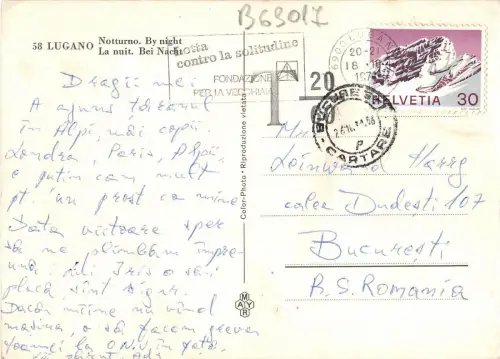 B69017
58 LUGANO Notturno. By night
La nuit. Bei Nacht
lotta
contro la solitudine
FONDAZIONE
PER LA VECCHIAIA
20
HELVETIA 30
CARTARE
P
Color-Photo • Riproduzione vietata
MAYR
Dragii mei
A ajuns țăranul
în Alpi, măi copii.
Londra Paris, Alpii,
e puțin cam mult
pt. un prost ca mine
Data viitoare sper
să ne plimbăm împre-
ună, lui Iris o să-i
placă sînt sigur.
Dacă mîine nu vînd
mașina, o să facem greva
foamei la O.N.U. în fața
Leinward Harry
calea Dudești 107
București
R.S. Romania